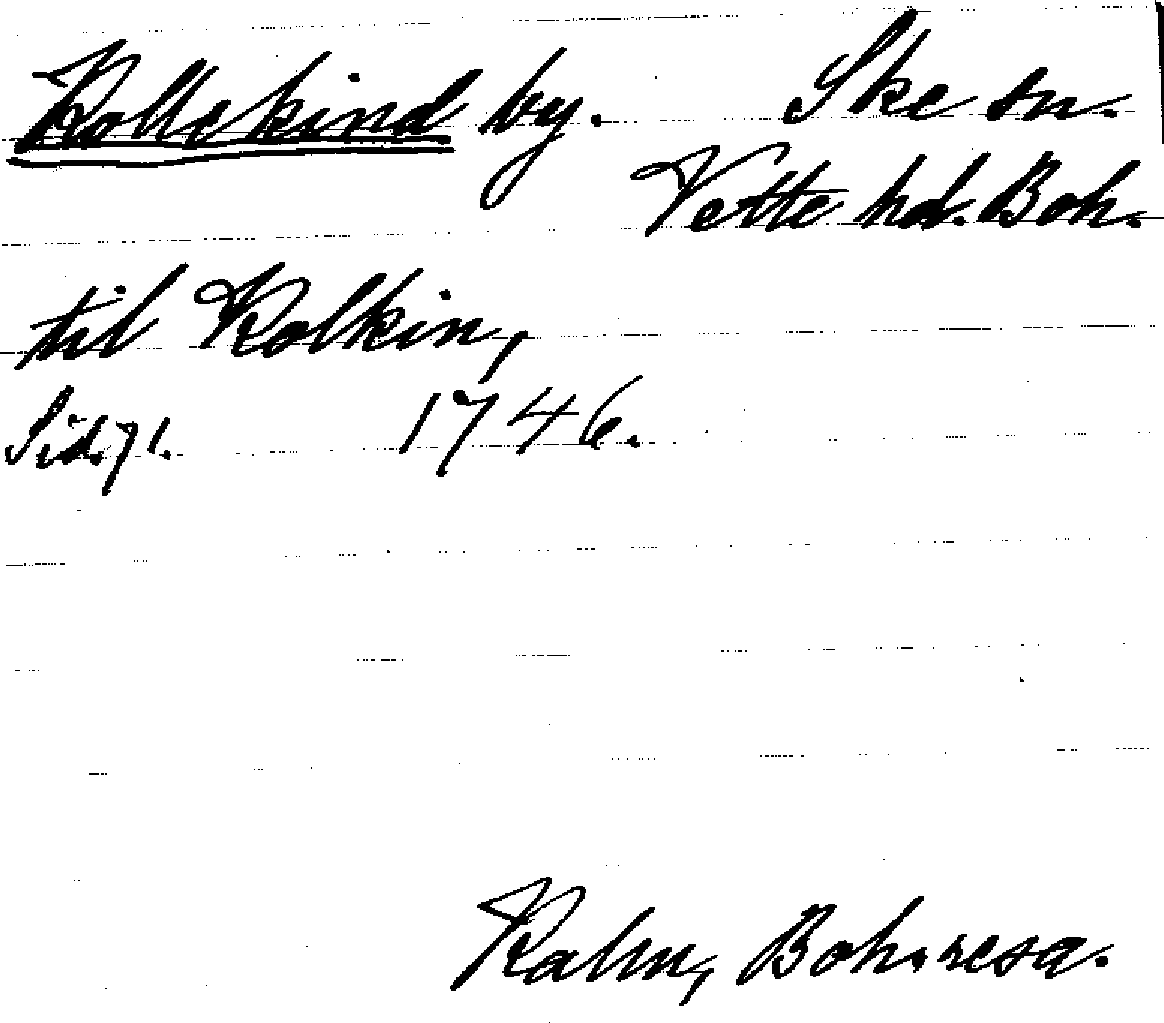 Kollekind by. Ske sn.
Vette hd. Boh.
til Kolkin,
Sid. 71. 1746.
Kalm, Boh. resa.